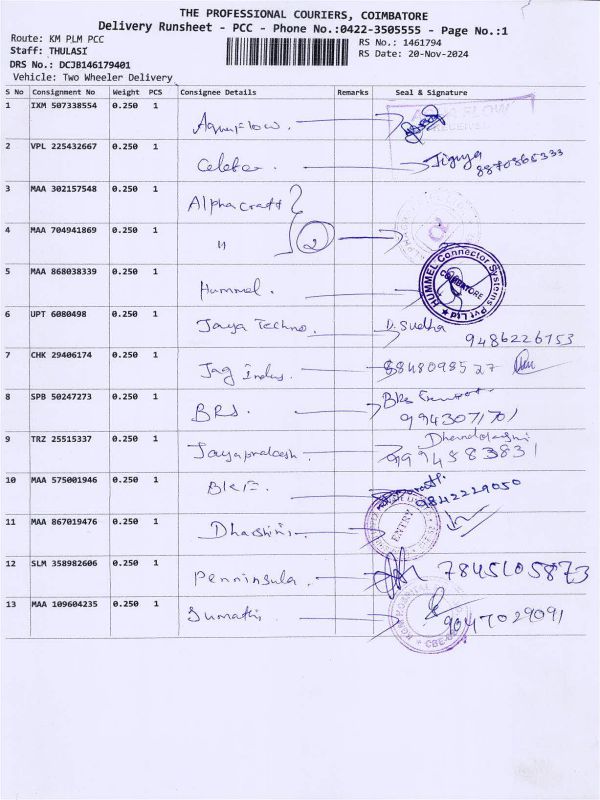 THE PROFESSIONAL COURIERS, COIMBATORE
Delivery Runsheet - PCC - Phone No.:0422-3505555 - Page No.:1
Route: KM PLM PCC
RS No.: 1461794
Staff: THULASI
RS Date: 20-Nov-2024
DRS No.: DCJB146179401
Vehicle: Two Wheeler Delivery
S No Consignment No Weight PCS Consignee Details Remarks Seal & Signature
1 IXM 507338554 0.250 1 Aquaflow. AQUA FLOW
RECEIVED
2 VPL 225432667 0.250 1 Celebe. Jigya
8870865333
3 MAA 302157548 0.250 1 Alphacraft
4 MAA 704941869 0.250 1 " 2
5 MAA 868038339 0.250 1 Hummel. HUMMEL Connector Systems Pvt Ltd COIMBATORE
6 UPT 6080498 0.250 1 Jaya Techno. D. Sudha
9486226753
7 CHK 29406174 0.250 1 Jag Indus. 8848098527
8 SPB 50247273 0.250 1 BRS.
9943071701
9 TRZ 25515337 0.250 1 Jayaprakash.
9994583831
10 MAA 575001946 0.250 1
9842229050
11 MAA 867019476 0.250 1 Dharshini. ENTRY
12 SLM 358982606 0.250 1 Penninsula. 7845105873
13 MAA 109604235 0.250 1 Sumathi 9047029091